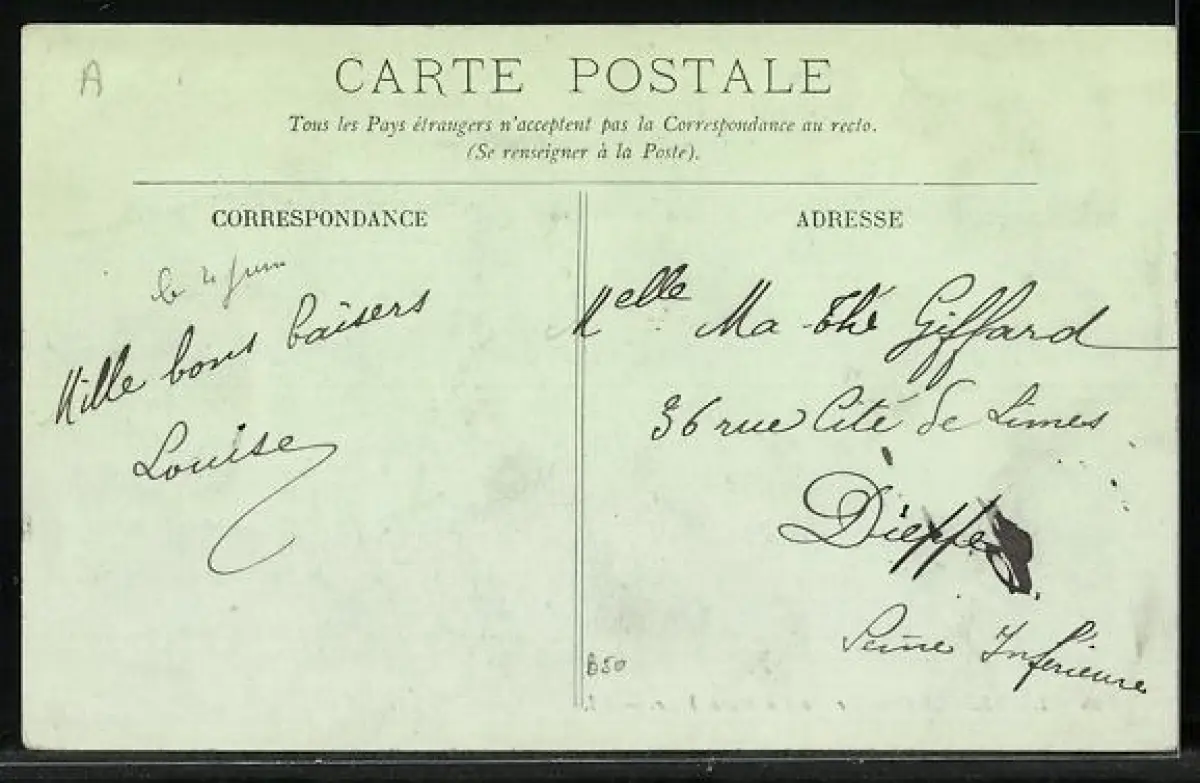 A
CARTE POSTALE
Tous les Pays étrangers n'acceptent pas la Correspondance au recto.
(Se renseigner à la Poste).
CORRESPONDANCE
le 4 juin
Mille bons baisers
Louise
ADRESSE
Melle Ma Thé Giffard
36 rue Cité de Limes
Dieppe
Seine Inférieure
B50